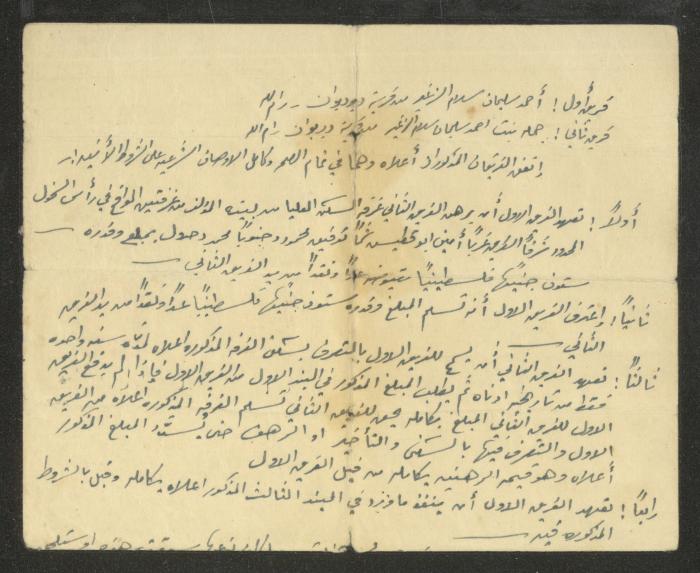 فريق أول : أحمد سليمان سلامه الزغير من قرية ديردبوان - رام الله
فريق ثاني : جمله بنت احمد سليمان سلامه الزغير من قرية ديردبوان رام الله
إتفق الفريقان المذكوران أعلاه وهما في تمام الصحه وكامل الاوصاف الشرعيه على الشروط الآتيه :-
أولاً : تعهد الفريق الاول أن يرهن الفريق الثاني غرفة السكن العليا من بيته المؤلف من غرفتين الواقع في رأس
المحدود شرقاً الطريق غرباً أمين شمالاً محمد وجنوباً محمد بمبلغ وقدره
ستون جنيهاً فلسطينياً عداً ونقداً من يد الفريق الثاني
ثانياً : واعترف الفريق الاول أنه تسلم المبلغ وقدره ستون جنيهاً فلسطينياً عداً ونقداً من يد الفريق
الثاني
ثالثاً : تعهد الفريق الثاني أن يسمح للفريق الاول بالتصرف بسكن الغرفه المذكوره اعلاه لمدة سنه واحده
فقط من تاريخ ادناه ثم يطلب المبلغ المذكور في البند الاول من الفريق الاول فإذا لم يدفع الفريق
الاول للفريق الثاني المبلغ بكامله يحق للفريق الثاني تسلم الغرفه المذكوره اعلاه من الفريق
الاول والتصرف فيها بالسكن والتأجير او الرهن حتى يسدد المبلغ المذكور
أعلاه وهو قيمة الرهنيه بكامله من قبل الفريق الاول
رابعاً : تعهد الفريق الاول أن ينفذ ما ورد في البند الثالث المذكور اعلاه بكامله وقبل بالشروط
المذكوره فيه